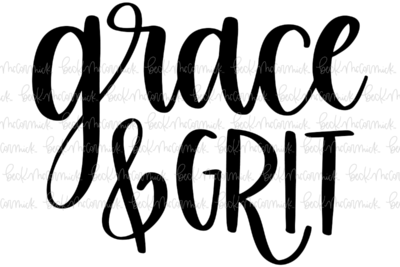 grace
& GRIT